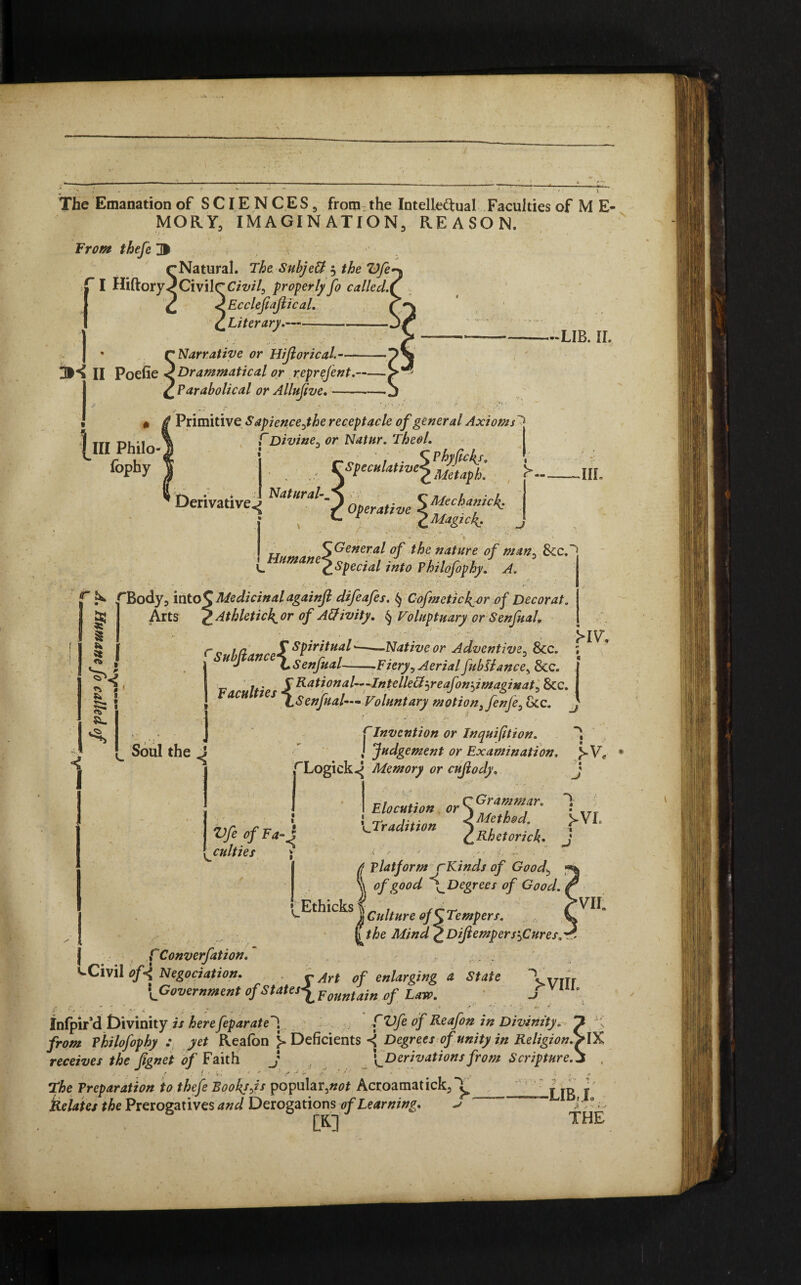 The Emanation of SCIENCES, from the Intellectual Faculties of ME-
MORY, IMAGINATION, REASON.
From theſe
Natural. The Subject; the Uſe
I Hiſtory Civil Civil, properly ſo called.
Eccleſiaſtical.
Literary.
LIB. II.
Narrative or Hiſtorical.
II Poeſie Drammatical or repreſent.
Parabolical or Alluſive.
Primitive Sapience, the receptacle of general Axioms
III Philo-
ſophy
Divine, or Natur. Theol.
Speculative Phyſicks.
Metaph.
III.
Derivative Natural
Operative Mechanick.
Magick.
Humane General of the nature of man, &c.
Special into Philoſophy. A.
A. Humane ſo called of
Body, into Medicinal againſt diſeaſes. § Coſmetick or of Decorat.
Arts Athletick or of Activity. § Voluptuary or Senſual.
IV.
Subſtance Spiritual—Native or Adventive, &c.
Senſual—Fiery, Aerial ſubſtance, &c.
Faculties Rational—Intellect; reaſon; imaginat, &c.
Senſual—Voluntary motion, ſenſe, &c.
Soul the
Invention or Inquiſition.
Judgement or Examination. V.
Logick Memory or cuſtody.
Elocution or
Tradition
Grammar.
Method. VI.
Rhetorick.
Uſe of Fa-
culties
Platform Kinds of Good,
of good Degrees of Good.
Ethicks VII.
Culture of Tempers.
the Mind Diſtempers; Cures.
Converſation.
Civil of Negociation.
Government of States Art of enlarging a State
Fountain of Law. VIII.
Inſpir'd Divinity is here ſeparate Uſe of Reaſon in Divinity.
from Philoſophy : yet Reaſon Deficients Degrees of unity in Religion. IX
receives the ſignet of Faith Derivations from Scripture.
The Preparation to theſe Books, is popular, not Acroamatick,
Relates the Prerogatives and Derogations of Learning. LIB. I.
[K] THE